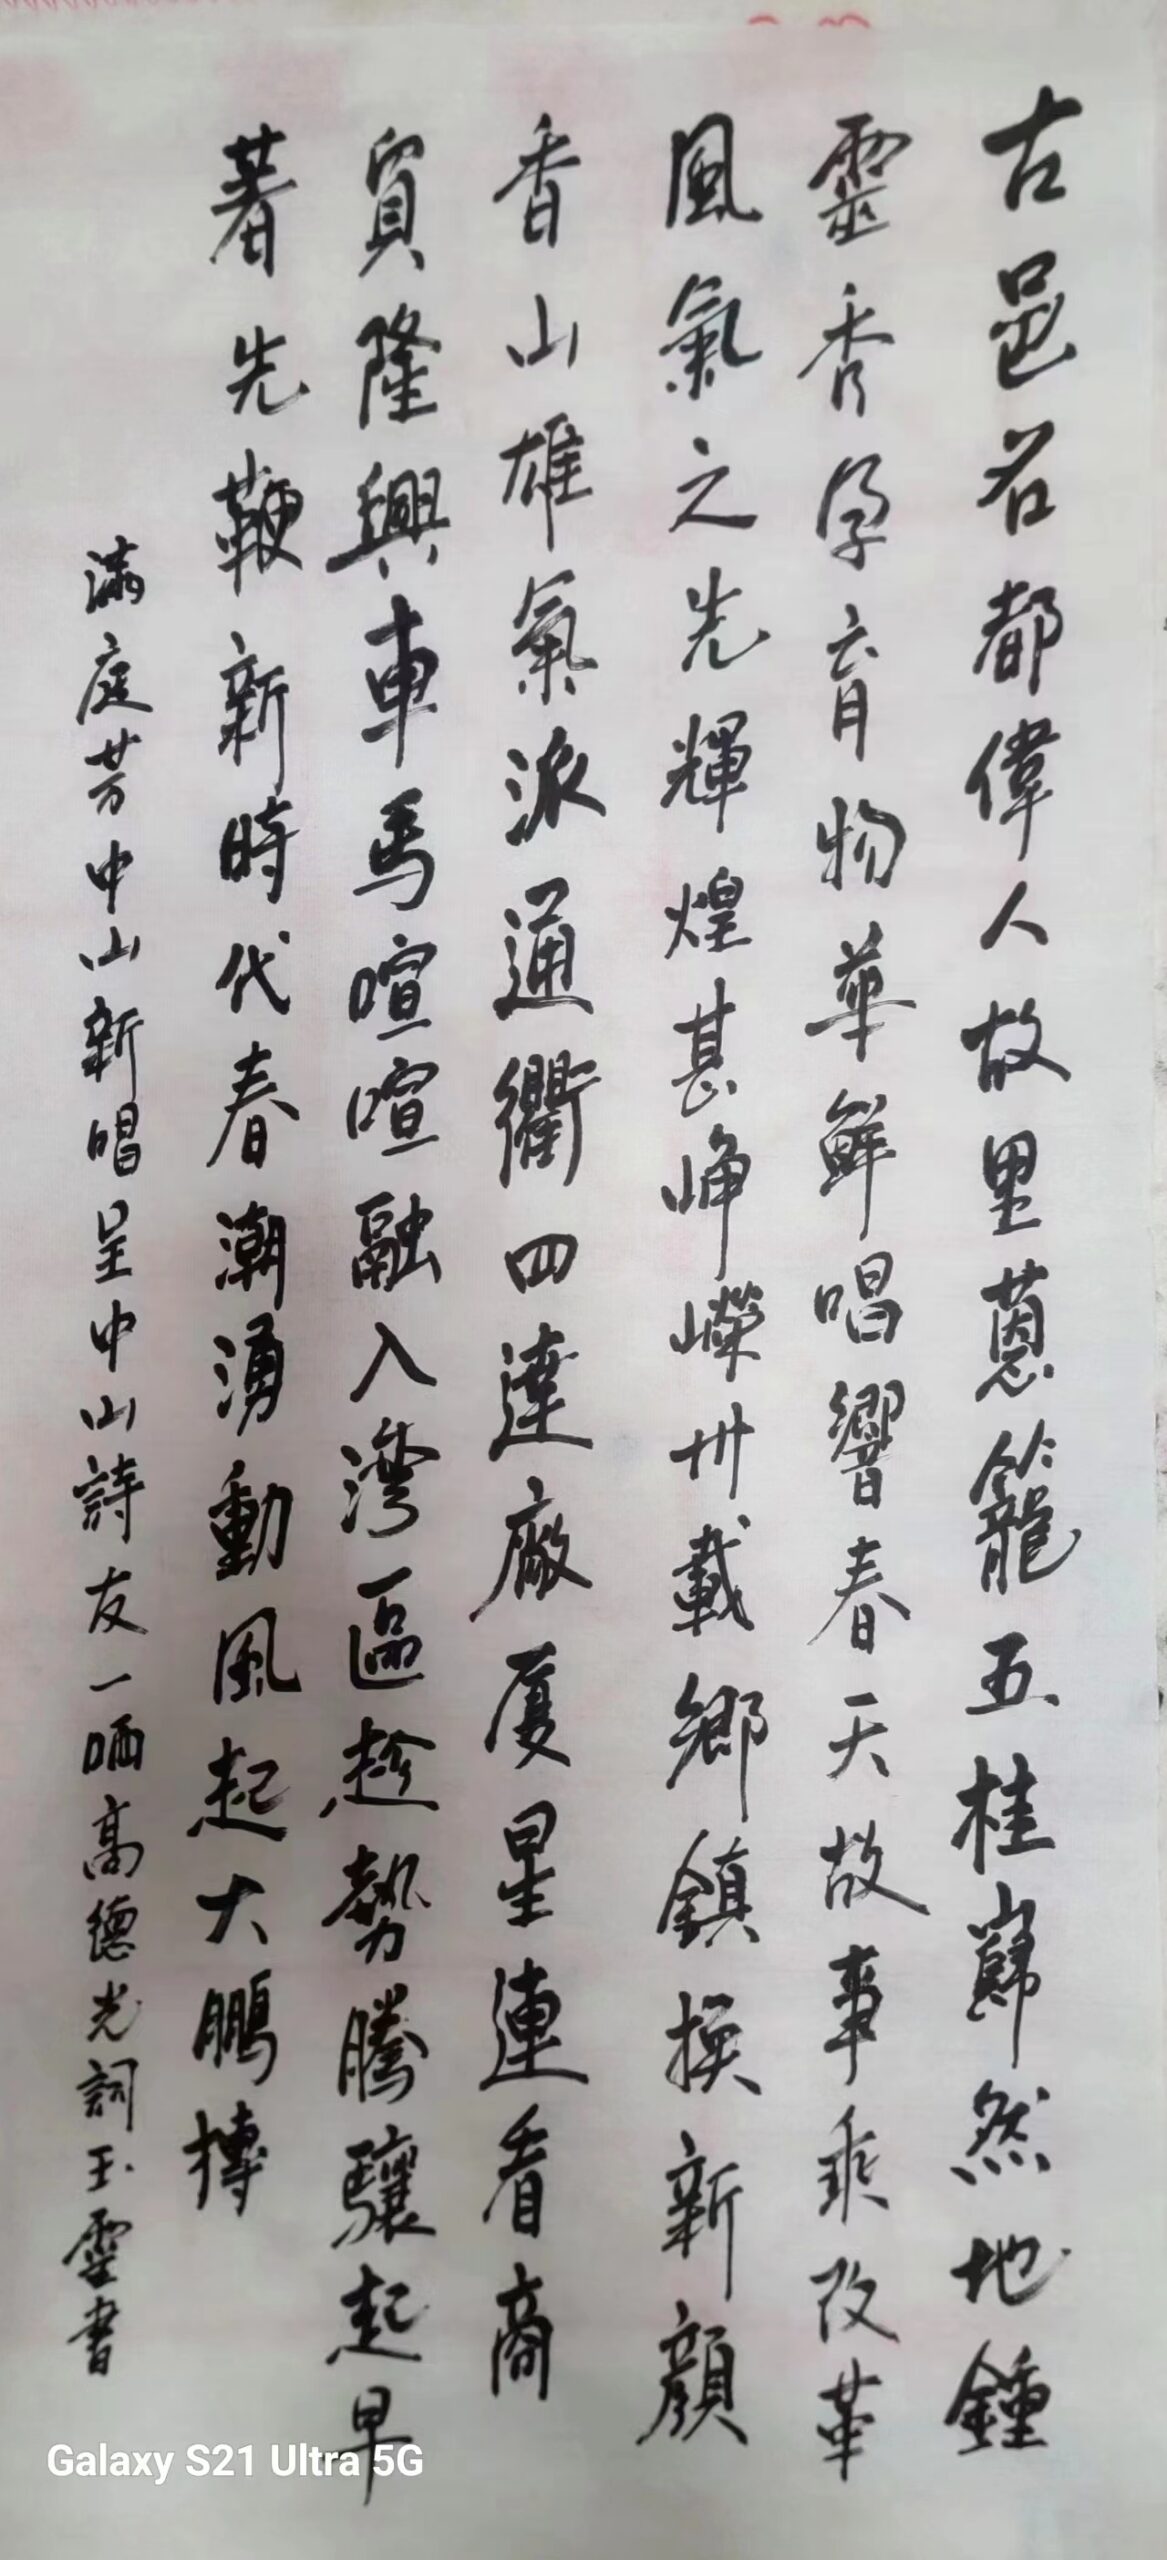 古邑名都偉人故里蔥籠五桂巋然地鍾
靈秀孕育物華鮮唱響春天故事乘改革
風氣之先輝煌甚崢嶸卅載鄉鎮換新顏
香山雄氣派通衢四達廠厦星連看商
貿隆興車馬喧喧融入灣區趁勢騰驤起早
著先鞭新時代春潮湧動風起大鵬摶
滿庭芳中山新唱呈中山詩友一哂高德光詞玉靈書
Galaxy S21 Ultra 5G